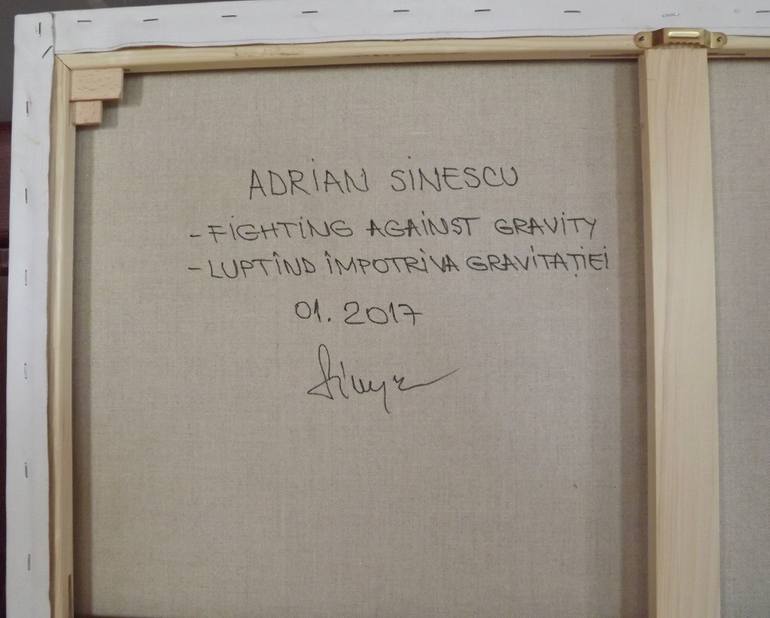 ADRIAN SINESCU
- FIGHTING AGAINST GRAVITY
- LUPTÎND ÎMPOTRIVA GRAVITAȚIEI
01. 2017